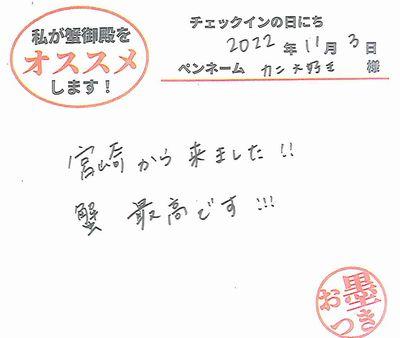 私が蟹御殿を
オススメ
します!
チェックインの日にち
2022年11月3日
ペンネーム カンナ好き 様
宮崎から来ました!!
蟹 最高です!!!
お墨
つき